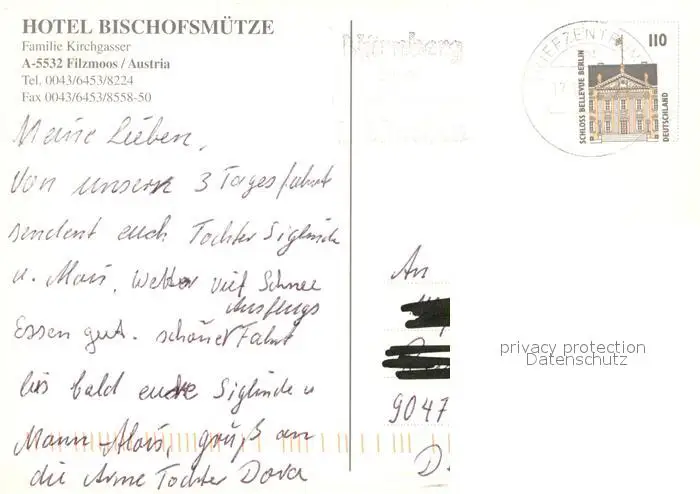 HOTEL BISCHOFSMÜTZE
Familie Kirchgasser
A-5532 Filzmoos / Austria
Tel. 0043/6453/8224
Fax 0043/6453/8558-50
Nürnberg
BRIEFZENTRUM
110
SCHLOSS BELLEVUE BERLIN
DEUTSCHLAND
Meine Lieben,
Von unsern 3 Tagesfahrt
sendent euch Tochter Siglinde
u. Alois. Wetter viel Schnee
Ausflugs
Essen gut. schöner Fahrt
bis bald eure Siglinde u
Mann-Alois, grüß an
die Arme Tochter Dora
An
9047
D.
privacy protection
Datenschutz